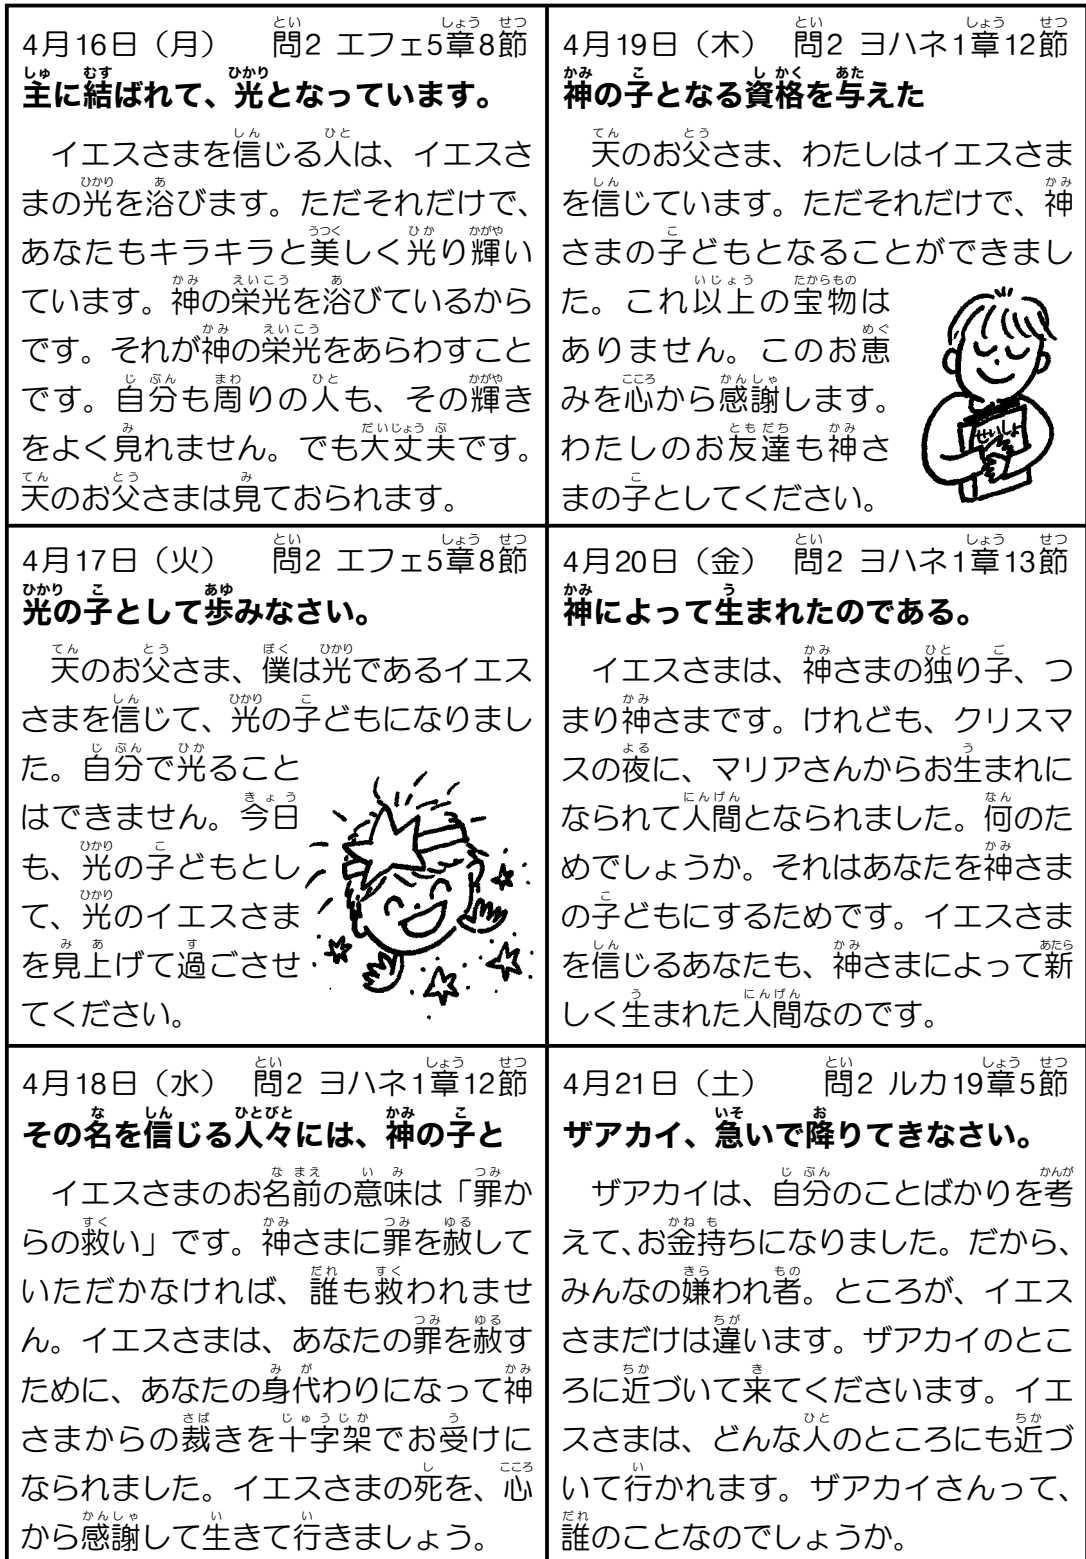 4月16日（月） 問2 エフェ5章8節
主に結ばれて、光となっています。
イエスさまを信じる人は、イエスさ
まの光を浴びます。ただそれだけで、
あなたもキラキラと美しく光り輝い
ています。神の栄光を浴びているから
です。それが神の栄光をあらわすこと
です。自分も周りの人も、その輝き
をよく見れません。でも大丈夫です。
天のお父さまは見ておられます。
4月17日（火） 問2 エフェ5章8節
光の子として歩みなさい。
天のお父さま、僕は光であるイエス
さまを信じて、光の子どもになりまし
た。自分で光ること
はできません。今日
も、光の子どもとし
て、光のイエスさま
を見上げて過ごさせ
てください。
4月18日（水） 問2 ヨハネ1章12節
その名を信じる人々には、神の子と
イエスさまのお名前の意味は「罪か
らの救い」です。神さまに罪を赦して
いただかなければ、誰も救われませ
ん。イエスさまは、あなたの罪を赦す
ために、あなたの身代わりになって神
さまからの裁きを十字架でお受けに
なられました。イエスさまの死を、心
から感謝して生きて行きましょう。
4月19日（木） 問2 ヨハネ1章12節
神の子となる資格を与えた
天のお父さま、わたしはイエスさま
を信じています。ただそれだけで、神
さまの子どもとなることができまし
た。これ以上の宝物は
ありません。このお恵
みを心から感謝します。
わたしのお友達も神さ
まの子としてください。
せいしょ
4月20日（金） 問2 ヨハネ1章13節
神によって生まれたのである。
イエスさまは、神さまの独り子、つ
まり神さまです。けれども、クリスマ
スの夜に、マリアさんからお生まれに
なられて人間となられました。何のた
めでしょうか。それはあなたを神さま
の子どもにするためです。イエスさま
を信じるあなたも、神さまによって新
しく生まれた人間なのです。
4月21日（土） 問2 ルカ19章5節
ザアカイ、急いで降りてきなさい。
ザアカイは、自分のことばかりを考
えて、お金持ちになりました。だから、
みんなの嫌われ者。ところが、イエス
さまだけは違います。ザアカイのとこ
ろに近づいて来てくださいます。イエ
スさまは、どんな人のところにも近づ
いて行かれます。ザアカイさんって、
誰のことなのでしょうか。